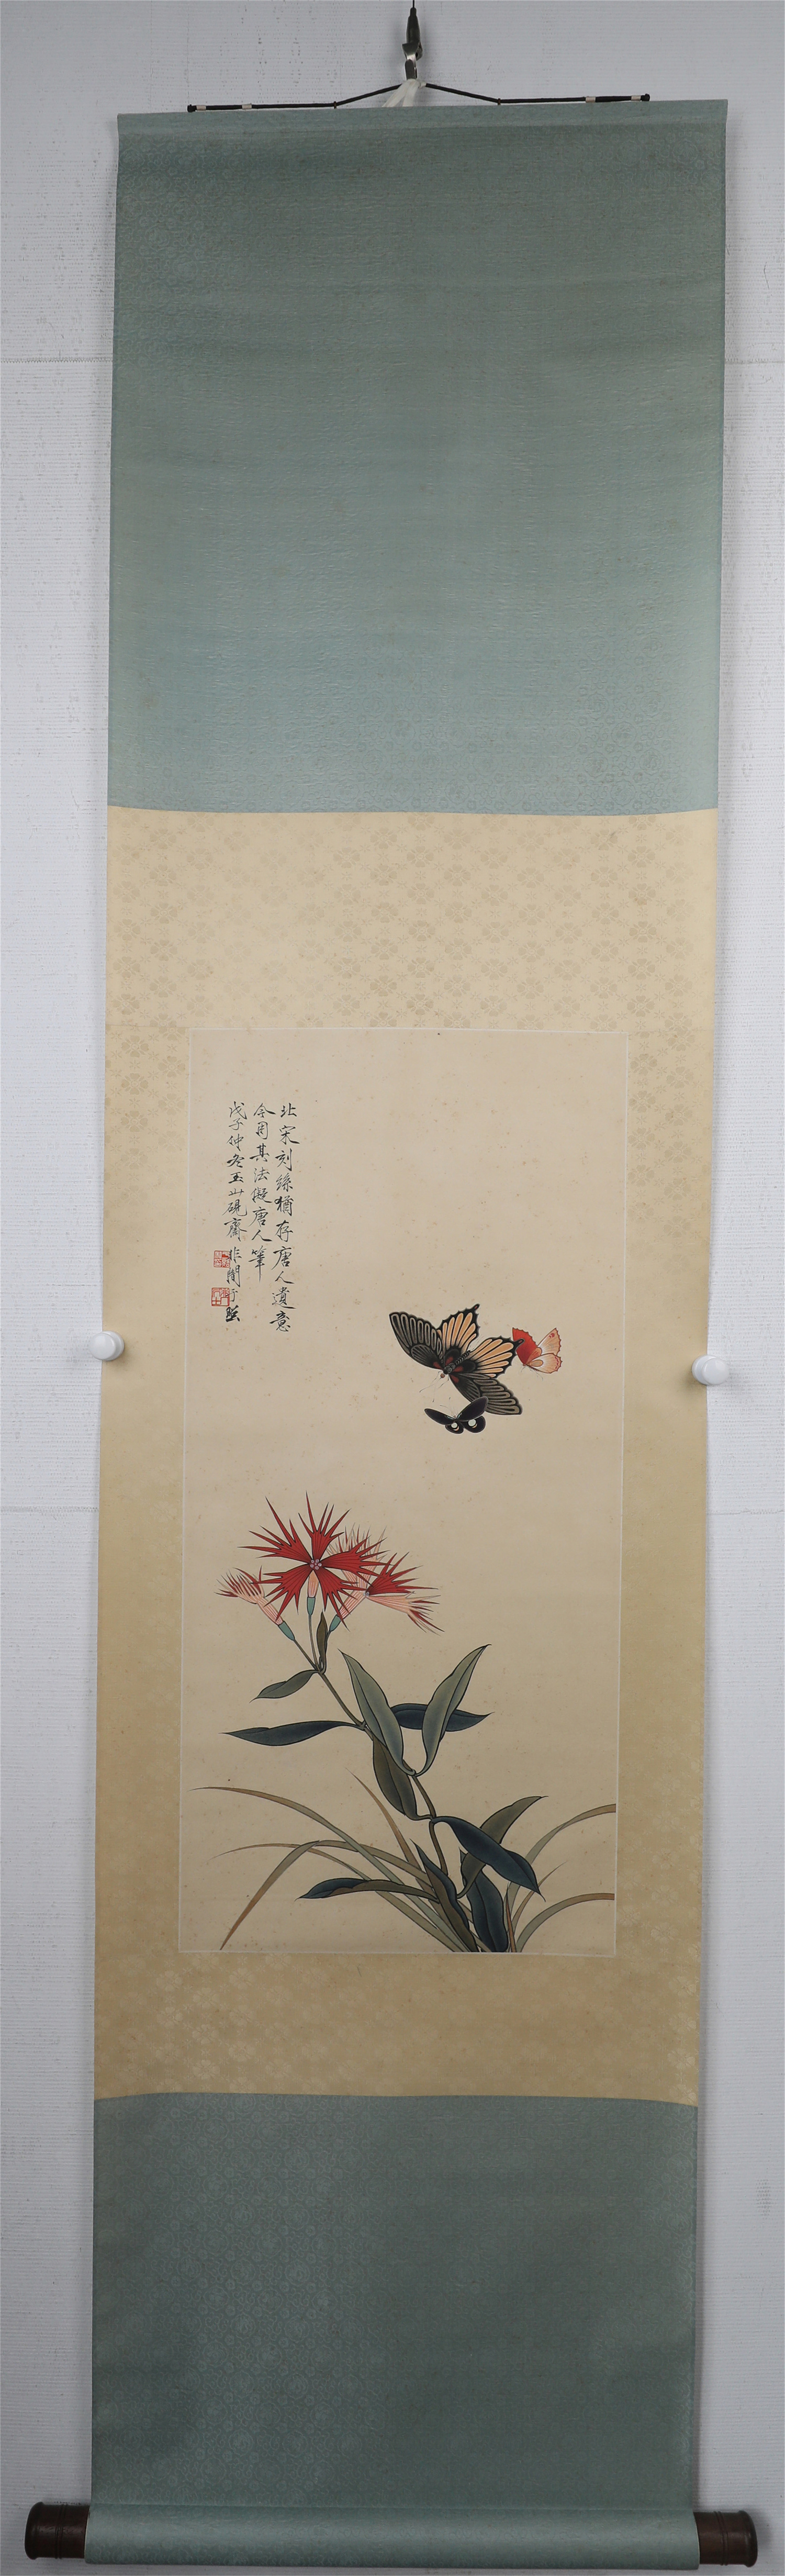 北宋刻絲猶存唐人遺意
今用其法擬唐人筆
戊子仲冬玉山硯齋非闇于照